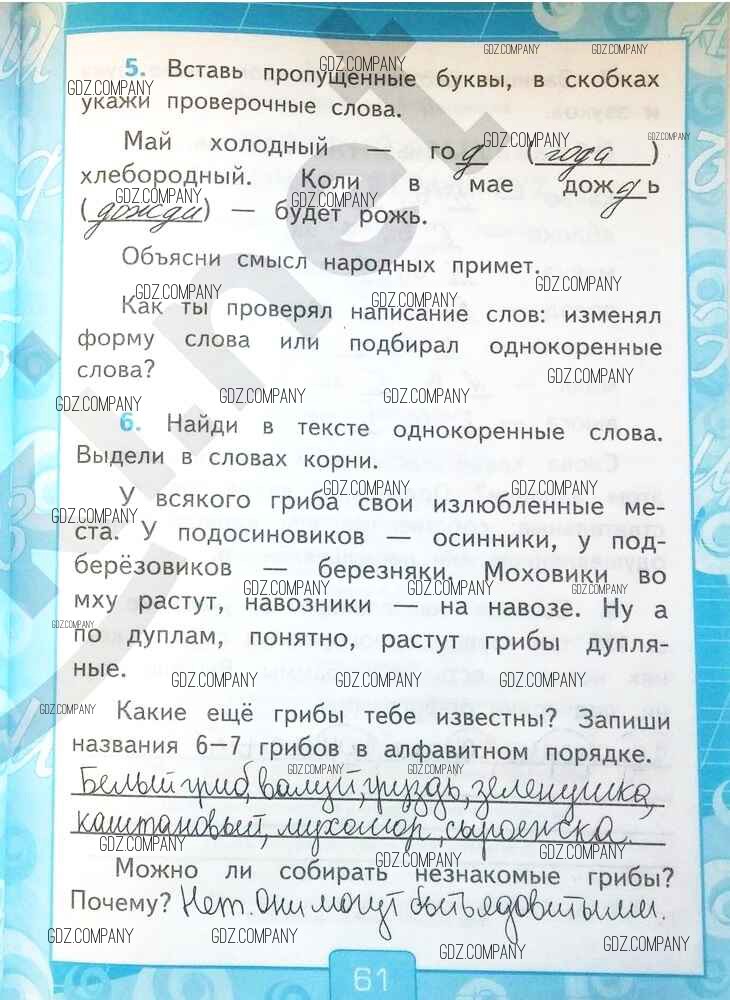 5. Вставь пропущенные буквы, в скобках
укажи проверочные слова.
Май холодный — год (года)
хлебородный. Коли в мае дождь
(дожди) — будет рожь.
Объясни смысл народных примет.
Как ты проверял написание слов: изменял
форму слова или подбирал однокоренные
слова?
6. Найди в тексте однокоренные слова.
Выдели в словах корни.
У всякого гриба свои излюбленные ме-
ста. У подосиновиков — осинники, у под-
берёзовиков — березняки. Моховики во
мху растут, навозники — на навозе. Ну а
по дуплам, понятно, растут грибы дупля-
ные.
Какие ещё грибы тебе известны? Запиши
названия 6—7 грибов в алфавитном порядке.
Белый гриб, валуй, груздь, зеленушка,
каштановый, мухомор, сыроежка.
Можно ли собирать незнакомые грибы?
Почему? Нет. Они могут быть ядовитыми.
GDZ.COMPANY
61